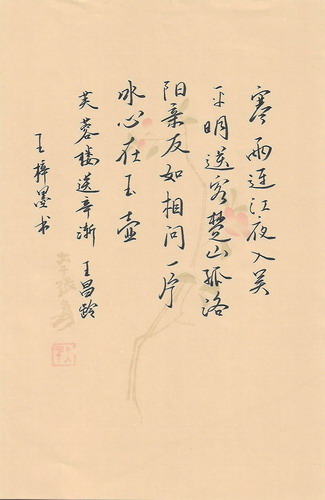 寒雨连江夜入吴
平明送客楚山孤洛
阳亲友如相问一片
冰心在玉壶
芙蓉楼送辛渐 王昌龄
王梓墨书